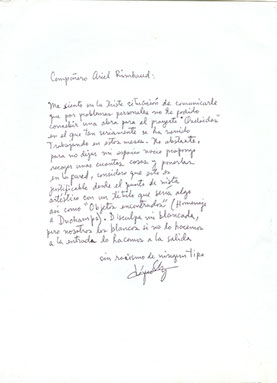 Compañero Ariel Rimbaud:
Me siento en la triste situación de comunicarle
que por problemas personales no he podido
concebir una obra para el proyecto
en el que tan seriamente se ha venido
trabajando en estos meses. No obstante,
para no dejar mi espacio vacío propongo
recoger unas cuantas cosas y ponerlas
en la pared, considero que esto es
justificable desde el punto de vista
artístico con un título que sería algo
así como "Objetos encontrados" (Homenaje
a Duchamps). Disculpa mi blancada,
pero nosotros los blancos si no lo hacemos
a la entrada lo hacemos a la salida
sin racismo de ningún tipo